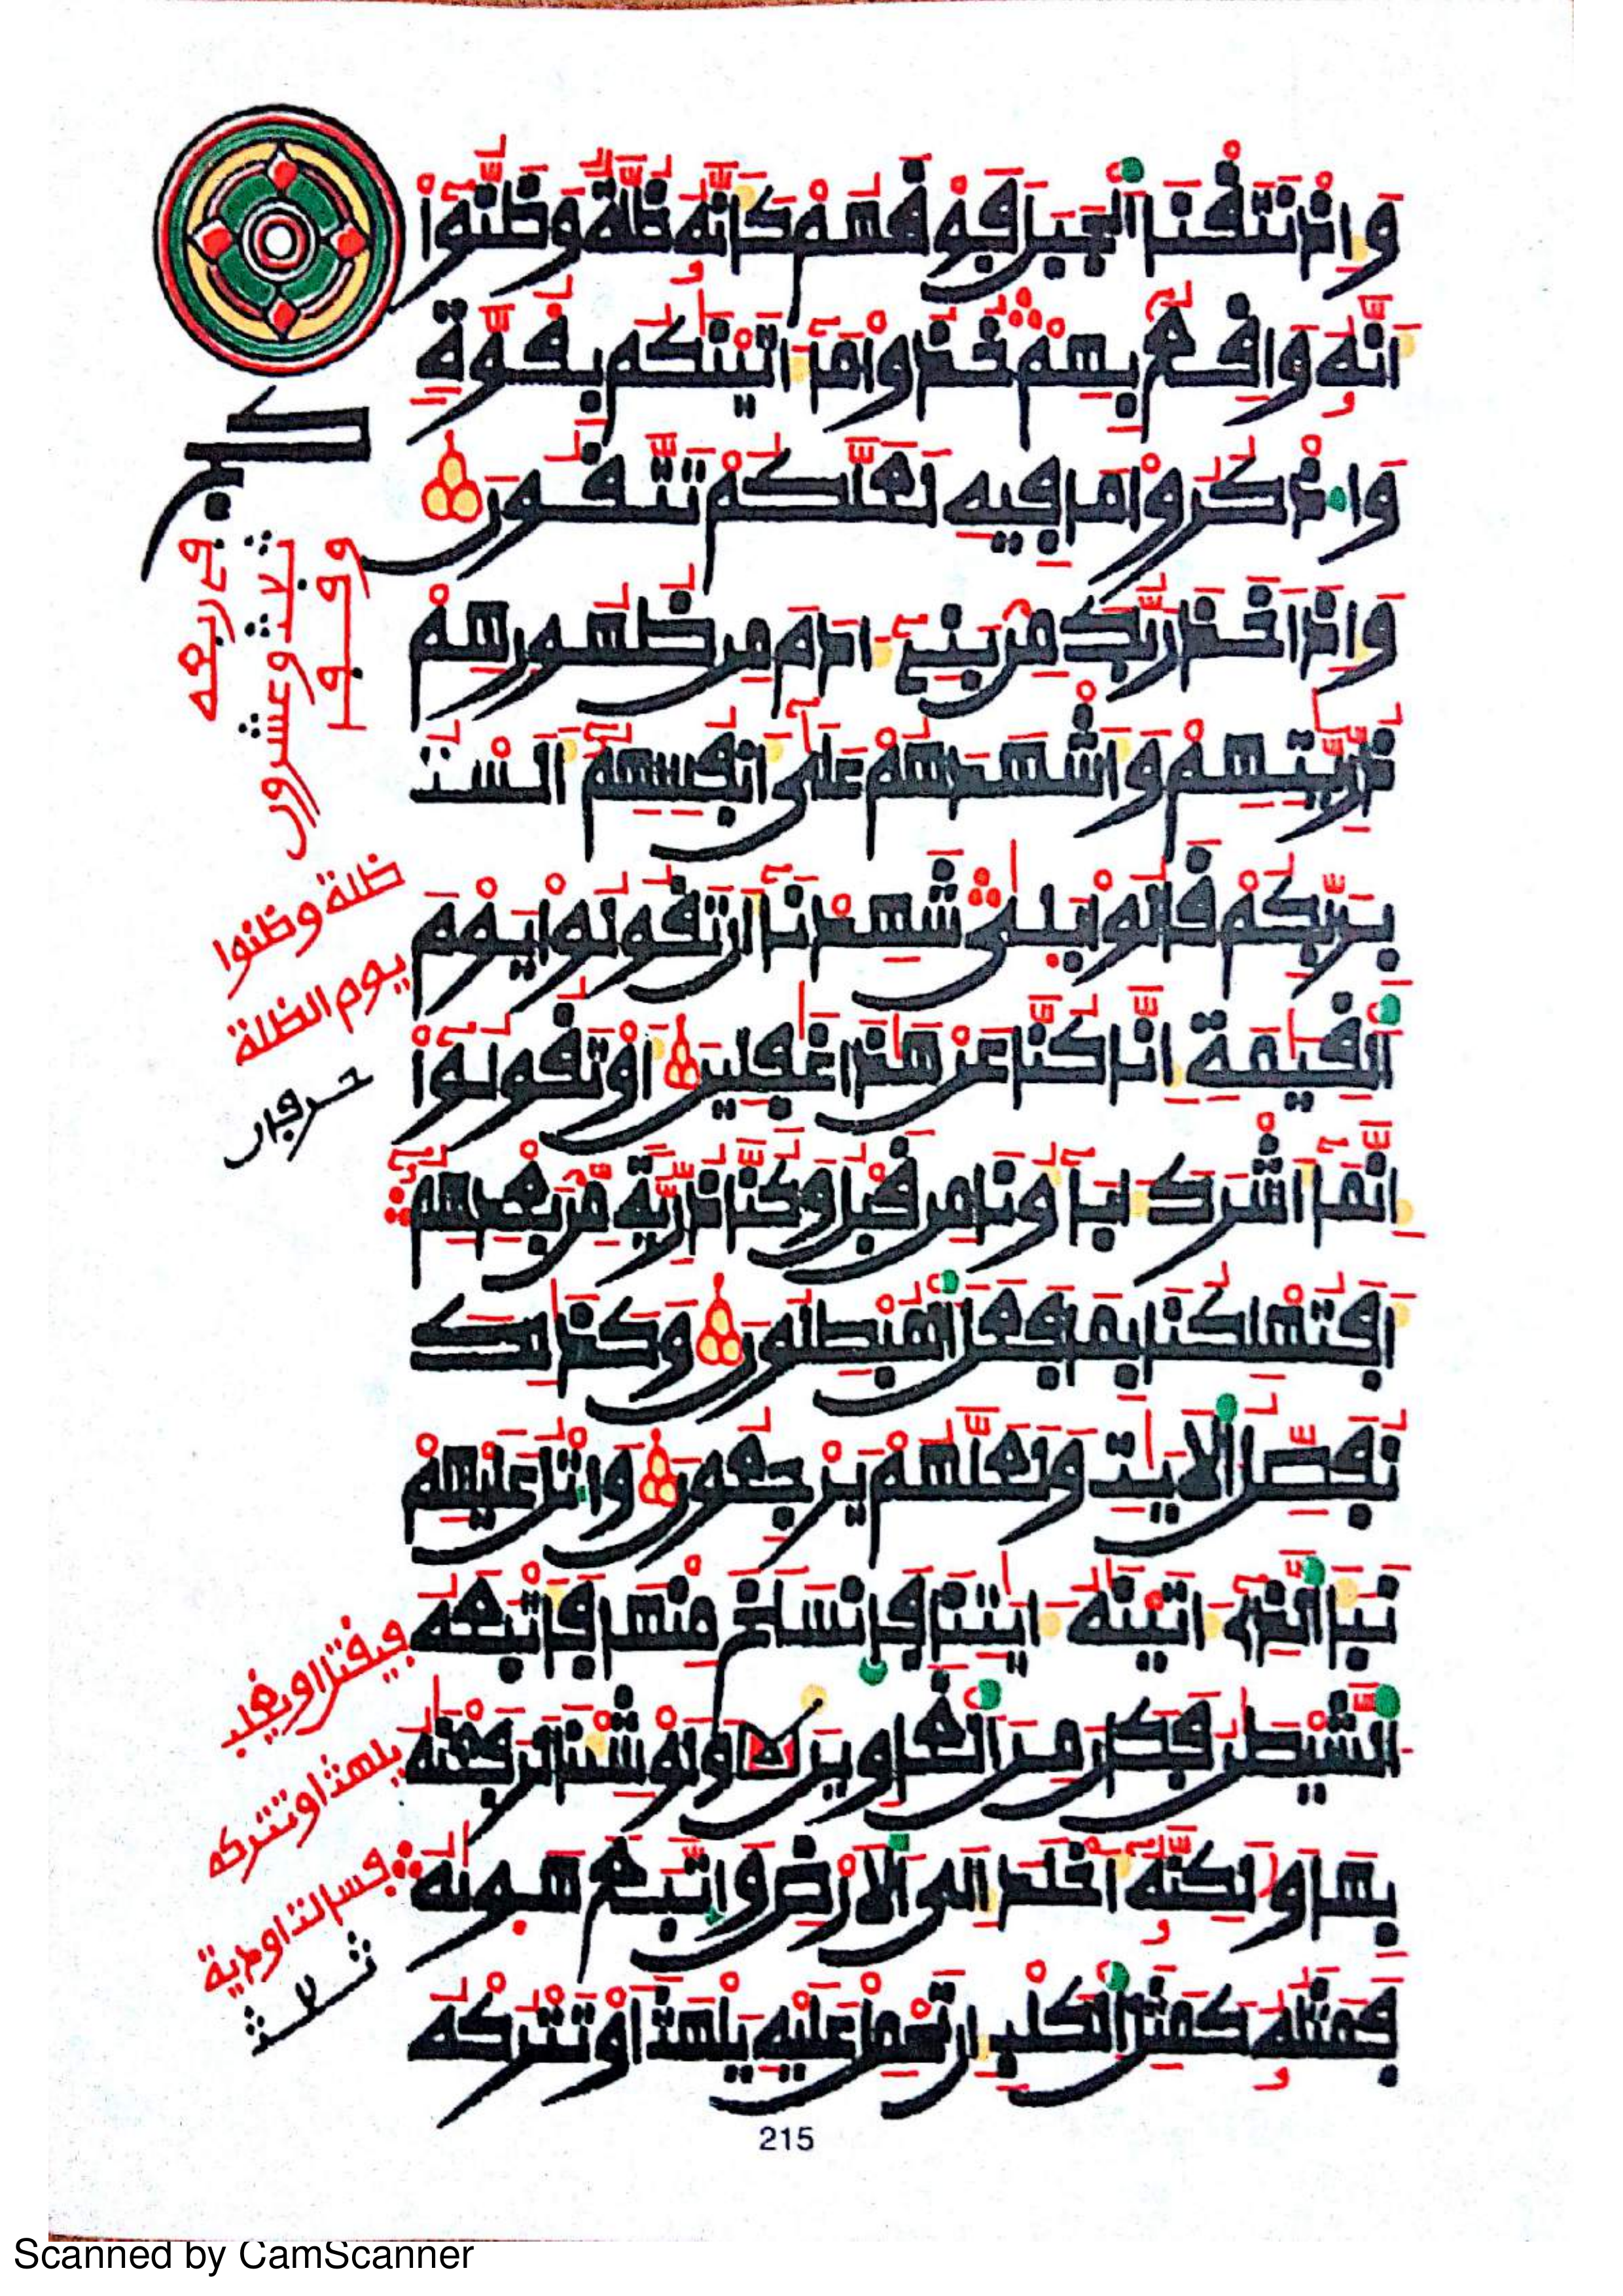 وَإِذْ نَتَقْنَا اَ۬لْجَبَلَ فَوْقَهُمْ كَأَنَّهُۥ ظُلَّةٌ وَظَنُّوٓاْ
أَنَّهُۥ وَاقِعُۢ بِهِمْ خُذُواْ مَآ ءَاتَيْنَٰكُم بِقُوَّةٍ
وَاذْكُرُواْ مَا فِيهِ لَعَلَّكُمْ تَتَّقُونَ
وَإِذْ أَخَذَ رَبُّكَ مِنۢ بَنِےٓ ءَادَمَ مِن ظُهُورِهِمْ
ذُرِّيَّٰتِهِمْ وَأَشْهَدَهُمْ عَلَىٰٓ أَنفُسِهِمُۥٓ أَلَسْتُ
بِرَبِّكُمْ قَالُواْ بَلَىٰ شَهِدْنَآ أَن تَقُولُواْ يَوْمَ
اَ۬لْقِيَٰمَةِ إِنَّا كُنَّا عَنْ هَٰذَا غَٰفِلِينَ أَوْ تَقُولُوٓاْ
إِنَّمَآ أَشْرَكَ ءَابَآؤُنَا مِن قَبْلُ وَكُنَّا ذُرِّيَّةً مِّنۢ بَعْدِهِمُۥٓ
أَفَتُهْلِكُنَا بِمَا فَعَلَ اَ۬لْمُبْطِلُونَ وَكَذَٰلِكَ
نُفَصِّلُ اُ۬لْأٓيَٰتِ وَلَعَلَّهُمْ يَرْجِعُونَ وَاتْلُ عَلَيْهِمْ
نَبَأَ اَ۬لذِےٓ ءَاتَيْنَٰهُ ءَايَٰتِنَا فَانسَلَخَ مِنْهَا فَأَتْبَعَهُ
اُ۬لشَّيْطَٰنُ فَكَانَ مِنَ اَ۬لْغَاوِينَ وَلَوْ شِئْنَا لَرَفَعْنَٰهُ
بِهَا وَلَٰكِنَّهُۥٓ أَخْلَدَ إِلَى اَ۬لْأَرْضِ وَاتَّبَعَ هَوَىٰهُ
فَمَثَلُهُۥ كَمَثَلِ اِ۬لْكَلْبِ إِن تَحْمِلْ عَلَيْهِ يَلْهَثَ اَوْ تَتْرُكْهُ
كج
وقوفها
ثلاثة وعشرون
في ربعه
ظلة وظنوا
يوم الظلة
حرفان
فيقتل او يغلب
يلهث او تتركه
ثلاث
215
Scanned by CamScanner